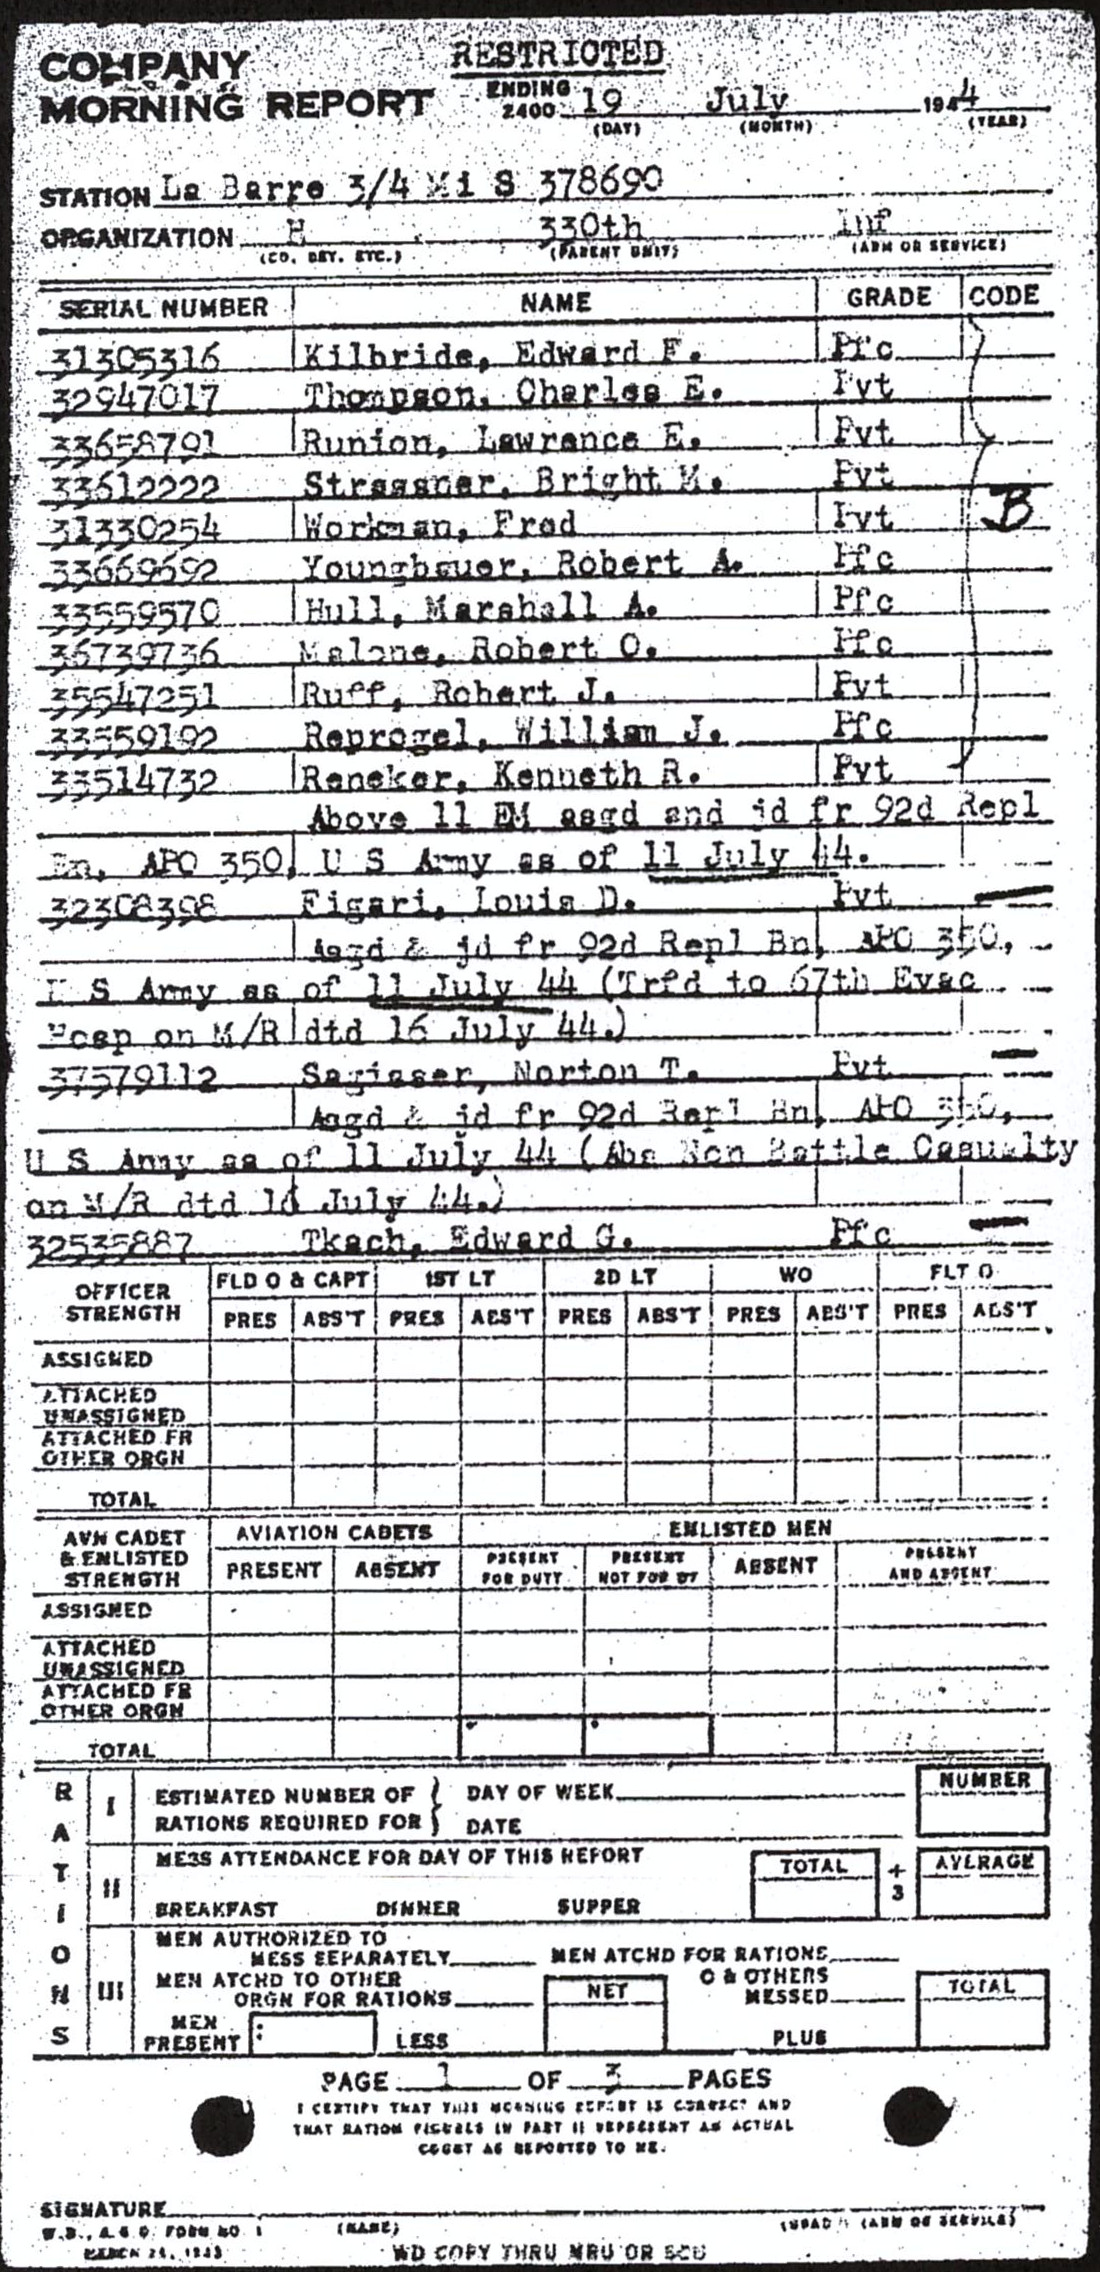 COMPANY
MORNING REPORT
RESTRICTED
ENDING 2400 19 July 1944
(DAY) (MONTH) (YEAR)
STATION La Barre 3/4 Mi S 378690
ORGANIZATION H 330th Inf
(CO. DET. ETC.) (PARENT UNIT) (ARM OR SERVICE)
SERIAL NUMBER NAME GRADE CODE
31305316 Kilbride, Edward F. Pfc
32947017 Thompson, Charles E. Pvt
33658791 Runion, Lawrence E. Pvt
33612222 Strassner, Bright M. Pvt
31330254 Workman, Fred Pvt B
33669692 Youngbauer, Robert A. Pfc
33559570 Hull, Marshall A. Pfc
36739736 Malone, Robert O. Pfc
35547251 Ruff, Robert J. Pvt
33559192 Reprogel, William J. Pfc
33514732 Reneker, Kenneth R. Pvt
Above 11 EM asgd and jd fr 92d Repl
Bn, APO 350, U S Army as of 11 July 44.
32308398 Figari, Louis D. Pvt —
Asgd & jd fr 92d Repl Bn, APO 350,
U S Army as of 11 July 44 (Trfd to 67th Evac
Hosp on M/R dtd 16 July 44.)
37579112 Sagisser, Norton T. Pvt —
Asgd & jd fr 92d Repl Bn, APO 350,
U S Army as of 11 July 44 (Abs Non Battle Casualty
on M/R dtd 16 July 44.)
32535887 Tkach, Edward G. Pfc —
OFFICER STRENGTH FLD O & CAPT 1ST LT 2D LT WO FLT O
PRES ABS'T PRES ABS'T PRES ABS'T PRES ABS'T PRES ABS'T
ASSIGNED
ATTACHED UNASSIGNED
ATTACHED FR OTHER ORGN
TOTAL
AVN CADET & ENLISTED STRENGTH AVIATION CADETS ENLISTED MEN
PRESENT ABSENT PRESENT FOR DUTY PRESENT NOT FOR DY ABSENT PRESENT AND ABSENT
ASSIGNED
ATTACHED UNASSIGNED
ATTACHED FR OTHER ORGN
TOTAL
RATIONS
I ESTIMATED NUMBER OF RATIONS REQUIRED FOR } DAY OF WEEK NUMBER
DATE
II MESS ATTENDANCE FOR DAY OF THIS REPORT TOTAL ÷ 3 AVERAGE
BREAKFAST DINNER SUPPER
III MEN AUTHORIZED TO
MESS SEPARATELY MEN ATCHD FOR RATIONS
MEN ATCHD TO OTHER ORGN FOR RATIONS NET O & OTHERS MESSED TOTAL
MEN PRESENT LESS PLUS
PAGE 1 OF 3 PAGES
I CERTIFY THAT THIS MORNING REPORT IS CORRECT AND
THAT RATION FIGURES IN PART II REPRESENT AN ACTUAL
COUNT AS REPORTED TO ME.
SIGNATURE
W.D., A.G.O. FORM NO. 1 (NAME) (GRADE) (ARM OR SERVICE)
MARCH 24, 1943
WD COPY THRU MRU OR SCU